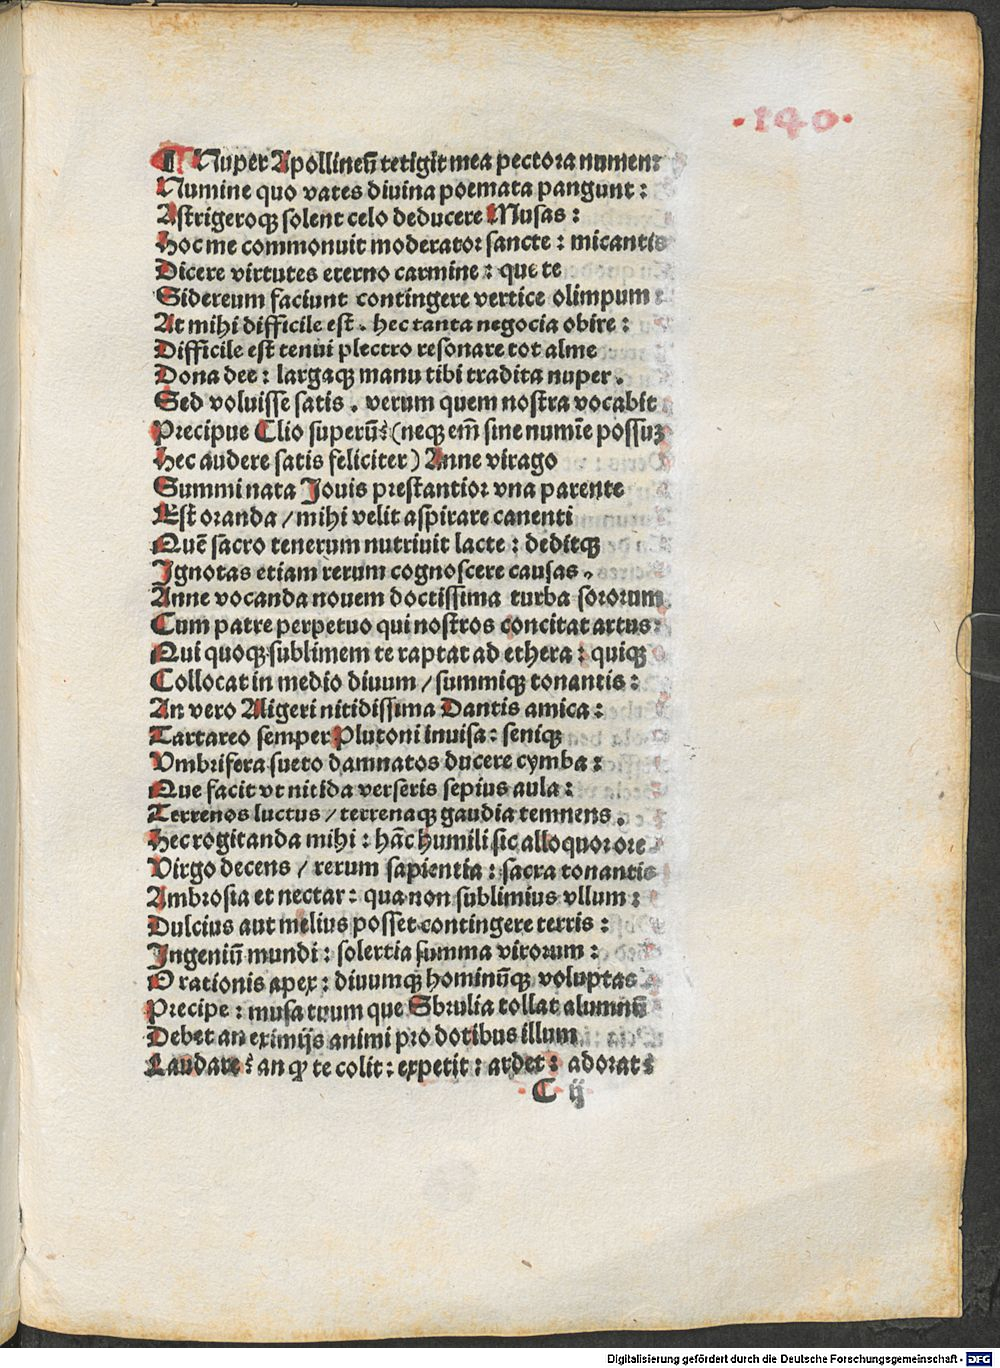 ·140·
¶ Nuper Apollineū tetigit mea pectora numen:
Numine quo vates diuina poemata pangunt:
Astrigeroqꝫ solent celo deducere Musas:
Hoc me commonuit moderator sancte: micantis
Dicere virtutes eterno carmine: que te
Sidereum faciunt contingere vertice olimpum:
At mihi difficile est. hec tanta negocia obire:
Difficile est tenui plectro resonare tot alme
Dona dee: largaqꝫ manu tibi tradita nuper.
Sed voluisse satis. verum quem nostra vocabit
Precipue Clio superū: (neqꝫ em̄ sine numīe possuꝫ
Hec audere satis feliciter) Anne virago
Summi nata Jouis prestantior vna parente
Est oranda / mihi velit aspirare canenti
Quē sacro tenerum nutriuit lacte: deditqꝫ
Ignotas etiam rerum cognoscere causas.
Anne vocanda nouem doctissima turba sororum
Cum patre perpetuo qui nostros concitat artus:
Qui quoqꝫ sublimem te raptat ad ethera: quiqꝫ
Collocat in medio diuum / summiqꝫ tonantis:
An vero Aligeri nitidissima Dantis amica:
Tartareo semper Plutoni inuisa: seniqꝫ
Vmbrifera sueto damnatos ducere cymba:
Que facit vt nitida verseris sepius aula:
Terrenos luctus / terrenaqꝫ gaudia temnens.
Hec rogitanda mihi: hāc humili sic alloquor ore
Virgo decens / rerum sapientia: sacra tonantis
Ambrosia et nectar: qua non sublimius vllum:
Dulcius aut melius posset contingere terris:
Ingeniū mundi: solertia summa virorum:
Orationis apex: diuumqꝫ hominūqꝫ voluptas
Precipe: musa tuum que Sbrulia tollat alumnū
Debet an eximijs animi pro dotibus illum
Laudare: an qꝫ te colit: expetit: ardet: adorat:
C ij
Digitalisierung gefördert durch die Deutsche Forschungsgemeinschaft - DFG